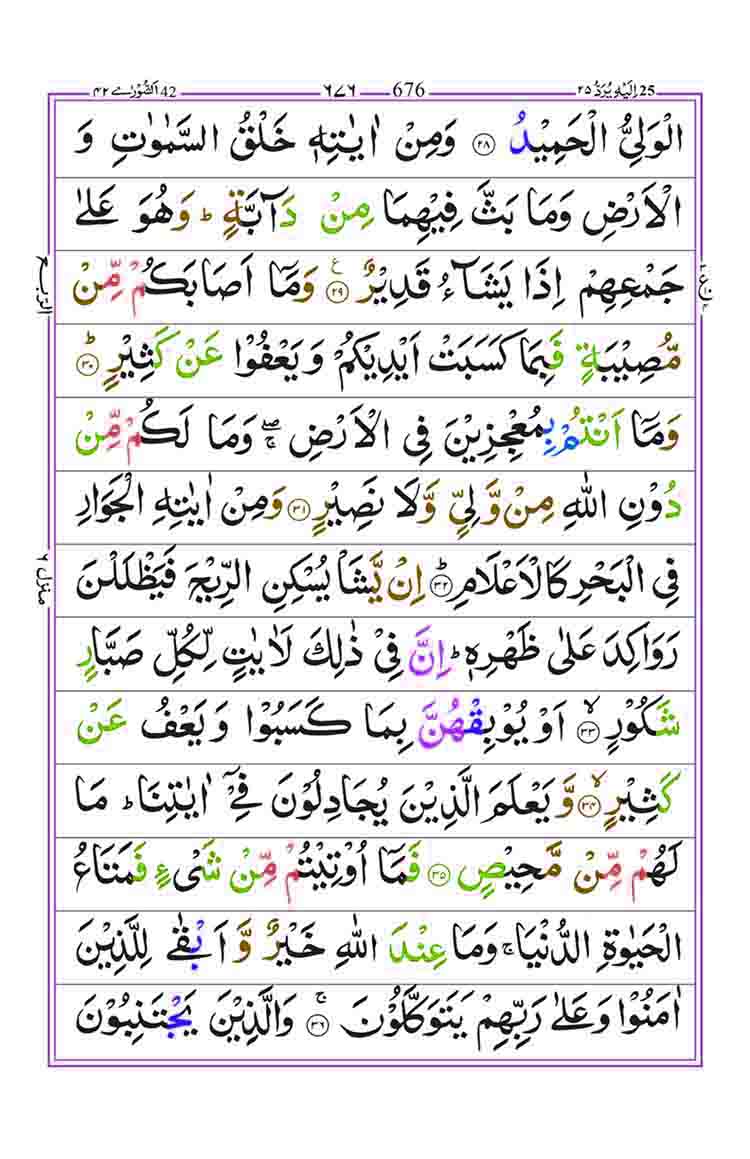 ۴۲ اَلشُّوْرٰے 42 ۶۷۶ 676 ۲۵ اِلَیْهِ یُرَدُّ 25
الْوَلِیُّ الْحَمِیْدُ ۝۲۸ وَمِنْ اٰیٰتِهٖ خَلْقُ السَّمٰوٰتِ وَ
الْاَرْضِ وَمَا بَثَّ فِیْهِمَا مِنْ دَآبَّةٍ ؕ وَهُوَ عَلٰی
جَمْعِهِمْ اِذَا یَشَآءُ قَدِیْرٌ ۝۲۹ ع وَمَاۤ اَصَابَكُمْ مِّنْ
مُّصِیْبَةٍ فَبِمَا كَسَبَتْ اَیْدِیْكُمْ وَیَعْفُوْا عَنْ كَثِیْرٍ ؕ۝۳۰
وَمَاۤ اَنْتُمْ بِمُعْجِزِیْنَ فِی الْاَرْضِ ۖۚ وَمَا لَكُمْ مِّنْ
دُوْنِ اللّٰهِ مِنْ وَّلِیٍّ وَّلَا نَصِیْرٍ ۝۳۱ وَمِنْ اٰیٰتِهِ الْجَوَارِ
فِی الْبَحْرِ كَالْاَعْلَامِ ؕ۝۳۲ اِنْ یَّشَاْ یُسْكِنِ الرِّیْحَ فَیَظْلَلْنَ
رَوَاكِدَ عَلٰی ظَهْرِهٖ ؕ اِنَّ فِیْ ذٰلِكَ لَاٰیٰتٍ لِّكُلِّ صَبَّارٍ
شَكُوْرٍ ۙ۝۳۳ اَوْ یُوْبِقْهُنَّ بِمَا كَسَبُوْا وَیَعْفُ عَنْ
كَثِیْرٍ ۙ۝۳۴ وَّیَعْلَمَ الَّذِیْنَ یُجَادِلُوْنَ فِیْۤ اٰیٰتِنَا ؕ مَا
لَهُمْ مِّنْ مَّحِیْصٍ ۝۳۵ فَمَاۤ اُوْتِیْتُمْ مِّنْ شَیْءٍ فَمَتَاعُ
الْحَیٰوةِ الدُّنْیَا ۚ وَمَا عِنْدَ اللّٰهِ خَیْرٌ وَّاَبْقٰی لِلَّذِیْنَ
اٰمَنُوْا وَعَلٰی رَبِّهِمْ یَتَوَكَّلُوْنَ ۚ۝۳۶ وَالَّذِیْنَ یَجْتَنِبُوْنَ
الرّبع
منزل ۶